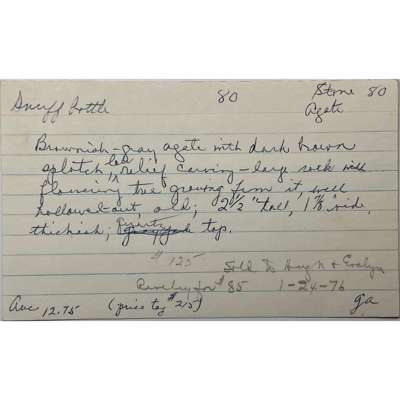 Snuff Bottle 80 Stone 80
Agate
Brownish-gray agate with dark brown
splotch, low relief carving - large rock with
flowering tree growing from it, well
hollowed-out, old; 2 1/2" tall, 1 7/8" wide,
thickish; top.
$125
Sold to Hugh & Evelyn
for $85 1-24-76
Auc 12.75 (price tag $215) ga